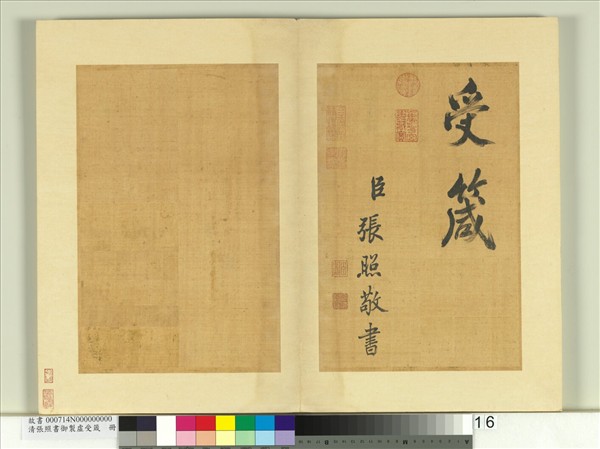 受箴
臣張照敬書
故書 000714N000000000
清張照書御製虛受箴 冊
16